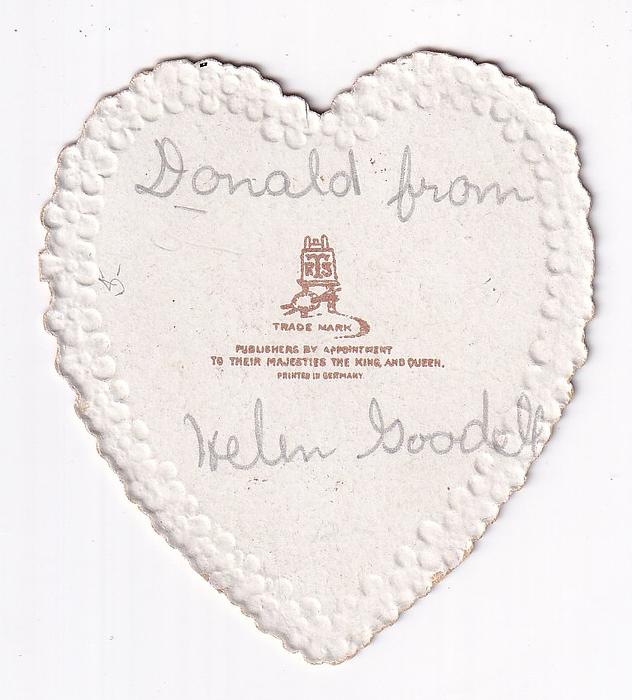 Donald from
RTS
TRADE MARK
PUBLISHERS BY APPOINTMENT
TO THEIR MAJESTIES THE KING, AND QUEEN.
PRINTED IN GERMANY
Helen